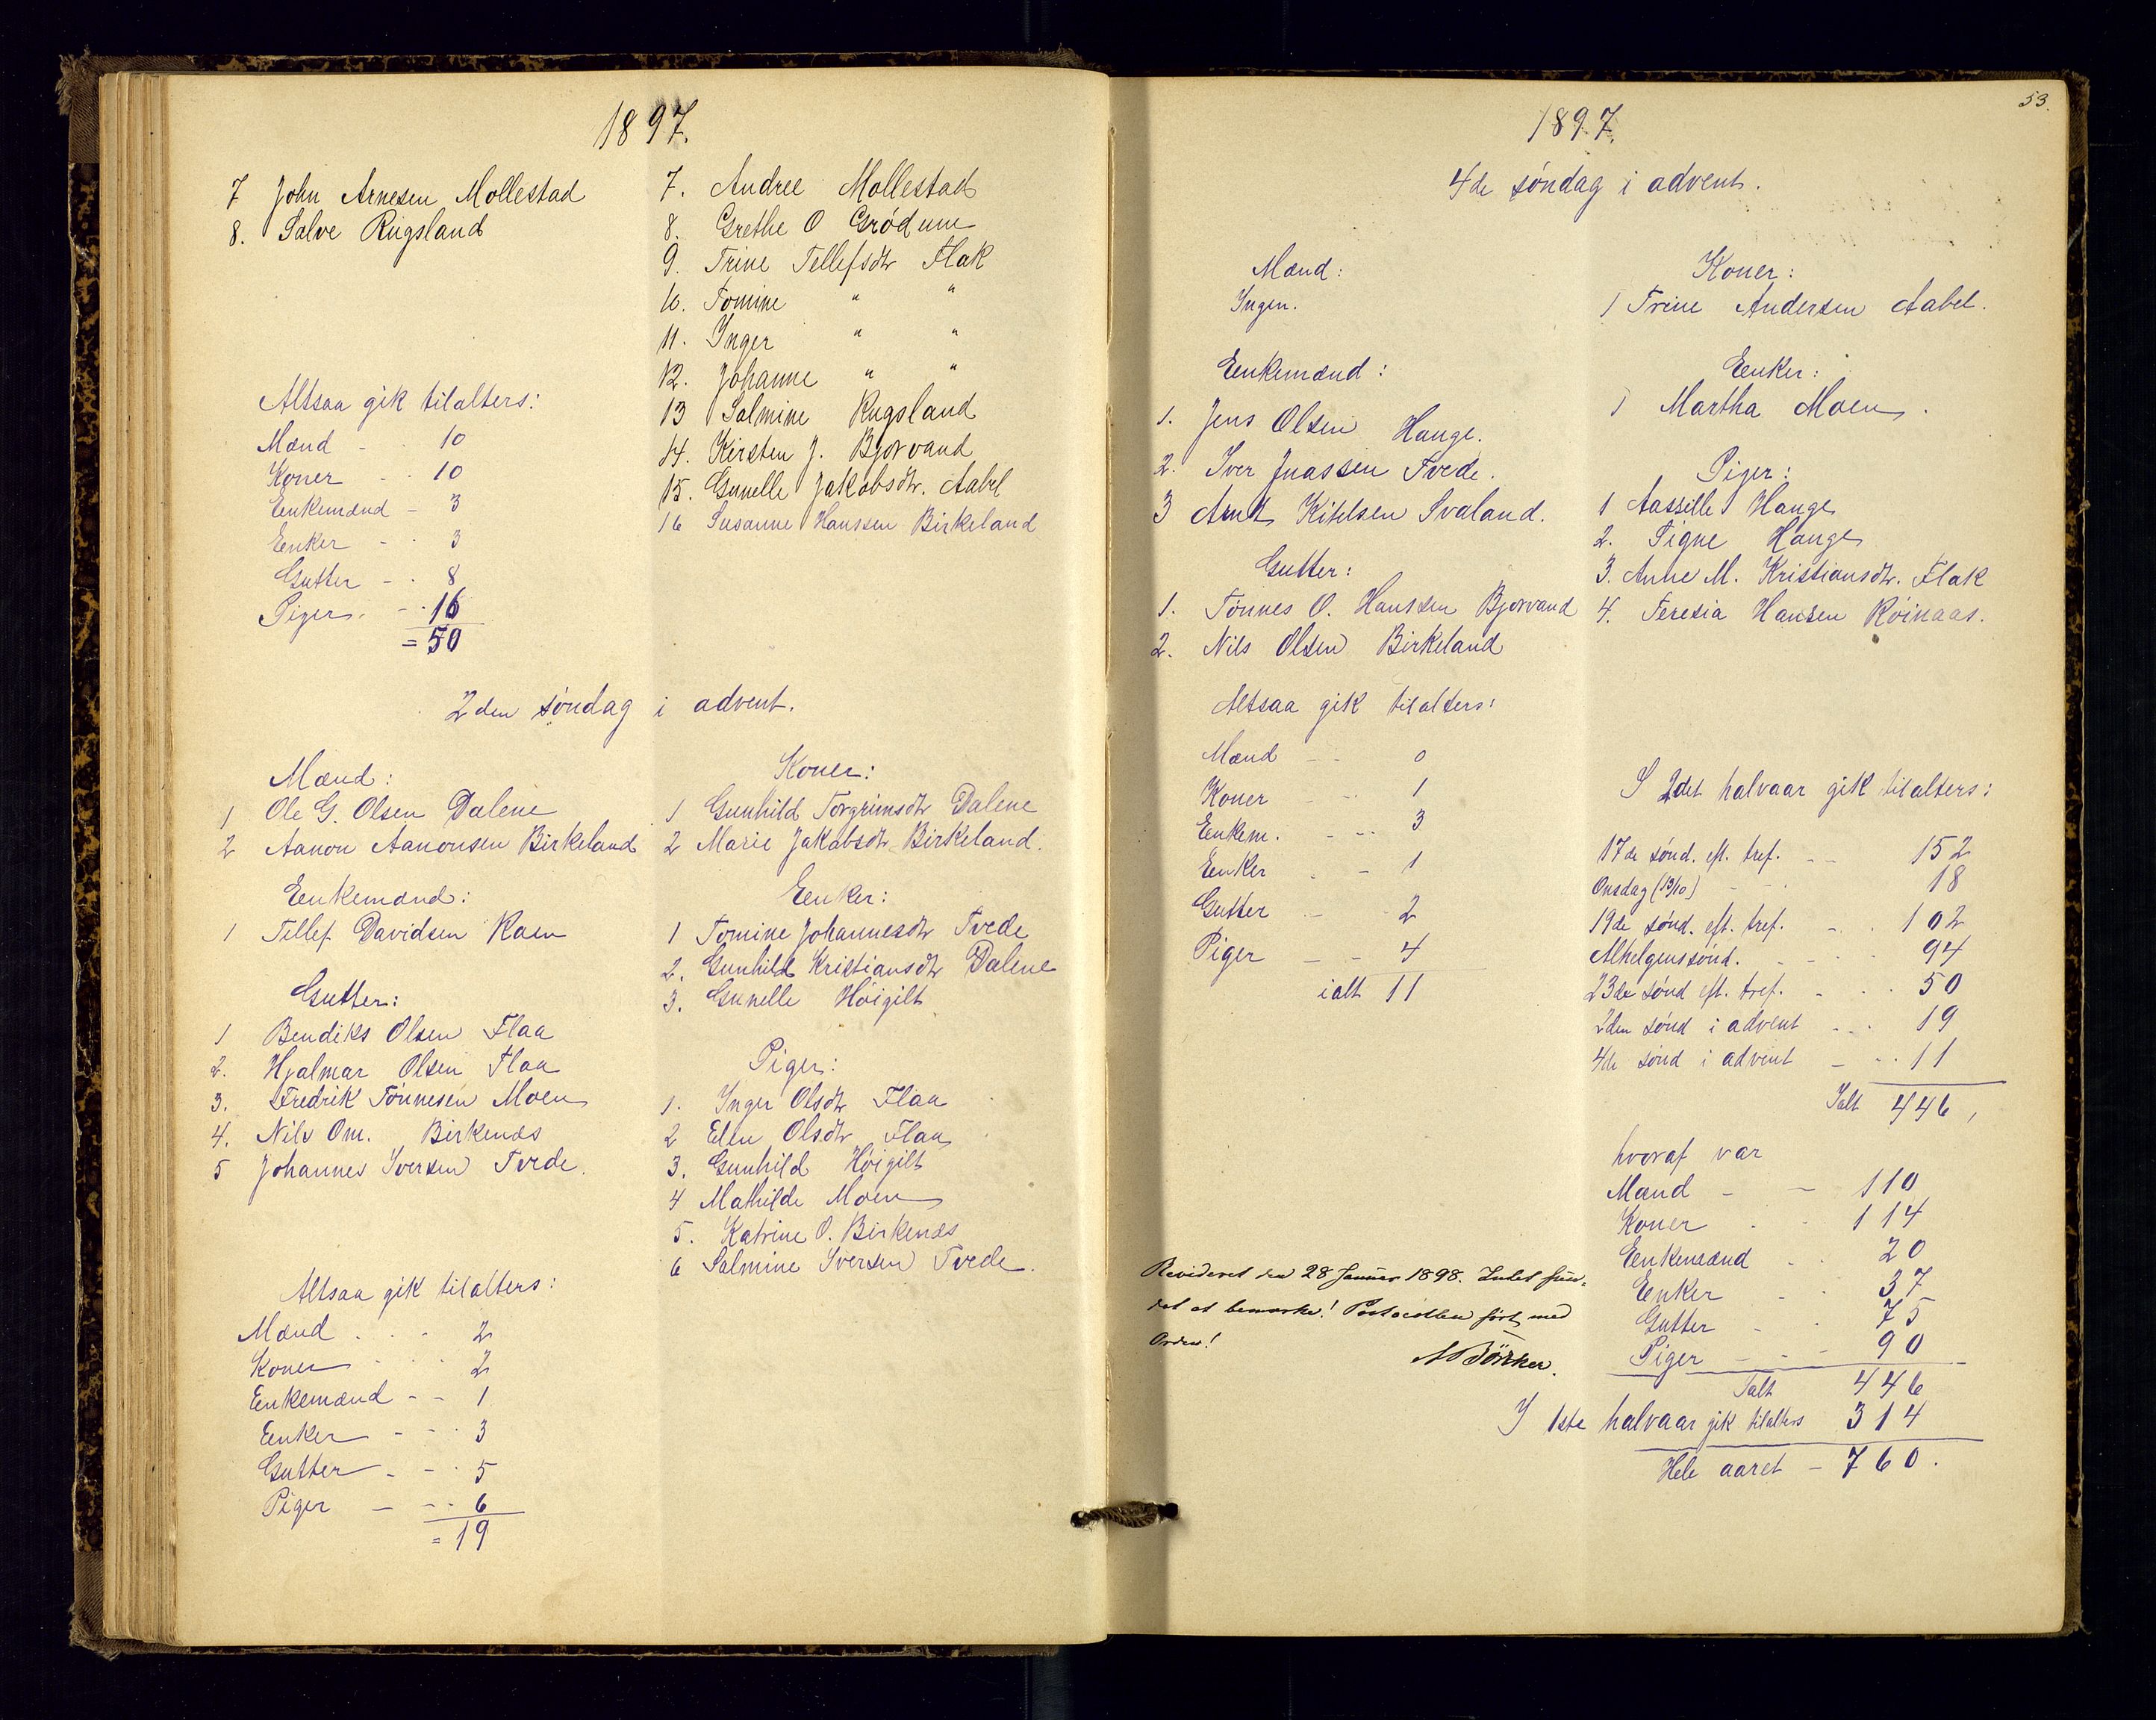 1897.
7 John Arnesen Mollestad
8. Salve Rugsland
7. Andree Mollestad
8. Grethe O Grødum
9. Trine Tellefsdtr Flak
10. Tomine " "
11. Inger " "
12. Johanne " "
13 Salmine Rugsland
14. Kirsten J. Bjorvand
15. Gunelle Jakobsdtr. Aabel
16 Susanne Hanssen Birkeland
Altsaa gik tilalters:
Mænd - - 10
Koner - - 10
Enkemænd - 3
Enker - - 3
Gutter - - 8
Piger. - - 16
= 50
2den søndag i advent.
Mænd:
1 Ole G. Olsen Dalene
2 Aanon Aanonsen Birkeland
Enkemænd:
1 Tellef Davidsen Raen
Gutter:
1 Bendiks Olsen Flaa
2. Hjalmar Olsen Flaa
3. Fredrik Tønnesen Moen
4. Nils Om. Birkenæs
5 Johannes Iversen Tvede.
Koner:
1 Gunhild Torgrimsdtr Dalene
2 Marie Jakobsdtr Birkeland.
Enker:
1 Tomine Johannesdtr Tvede
2. Gunhild Kristiansdtr Dalene
3. Gunelle Høigilt
Piger:
1. Inger Olsdtr Flaa
2 Elen Olsdtr Flaa
3. Gunhild Høigilt
4 Mathilde Moen
5. Katrine O. Birkenæs
6 Salmine Iversen Tvede.
Altsaa gik tilalters:
Mænd . . - 2
Koner - - 2
Enkemænd - - 1
Enker - - - 3
Gutter - - . 5
Piger - - - 6
= 19
53.
1897.
4de søndag i advent.
Mænd:
Ingen.
Enkemænd:
1. Jens Olsen Hauge.
2. Iver Jnassen Tvede.
3 Arnt Kittelsen Svaland.
Gutter:
1. Tønnes O. Hanssen Bjorvand
2. Nils Olsen Birkeland
Koner:
1 Trine Andersen Aabel.
Enker:
1 Martha Moen.
Piger:
1 Aasille Hauge
2. Signe Hauge
3. Anne M. Kristiansdtr. Flak
4. Teresia Hansen Røinaas.
Altsaa gik tilalters:
Mænd - - 0
Koner - - 1
Enkem. - - - 3
Enker - - 1
Gutter - - 2
Piger - - 4
ialt 11
I 2det halvaar gik tilalters:
17de sønd. eft. tref. - - 152
Onsdag (13/10) - - 18
19de sønd. eft. tref. - . 102
Alhelgenssønd. - - . . 94
23de sønd eft. tref. - . . 50
2den sønd i advent - - . 19
4de sønd i advent - - . 11
Ialt 446,
hvoraf var
Mænd - - 110
Koner . . 114
Enkemænd . . 20
Enker - . 37
Gutter - . 75
Piger - - - 90
Ialt 446
I 1ste halvaar gik tilalters 314
Hele aaret - 760.
Revideret den 28 Januar 1898. Intet fun-
det at bemærke! Protocollen ført med
Orden!